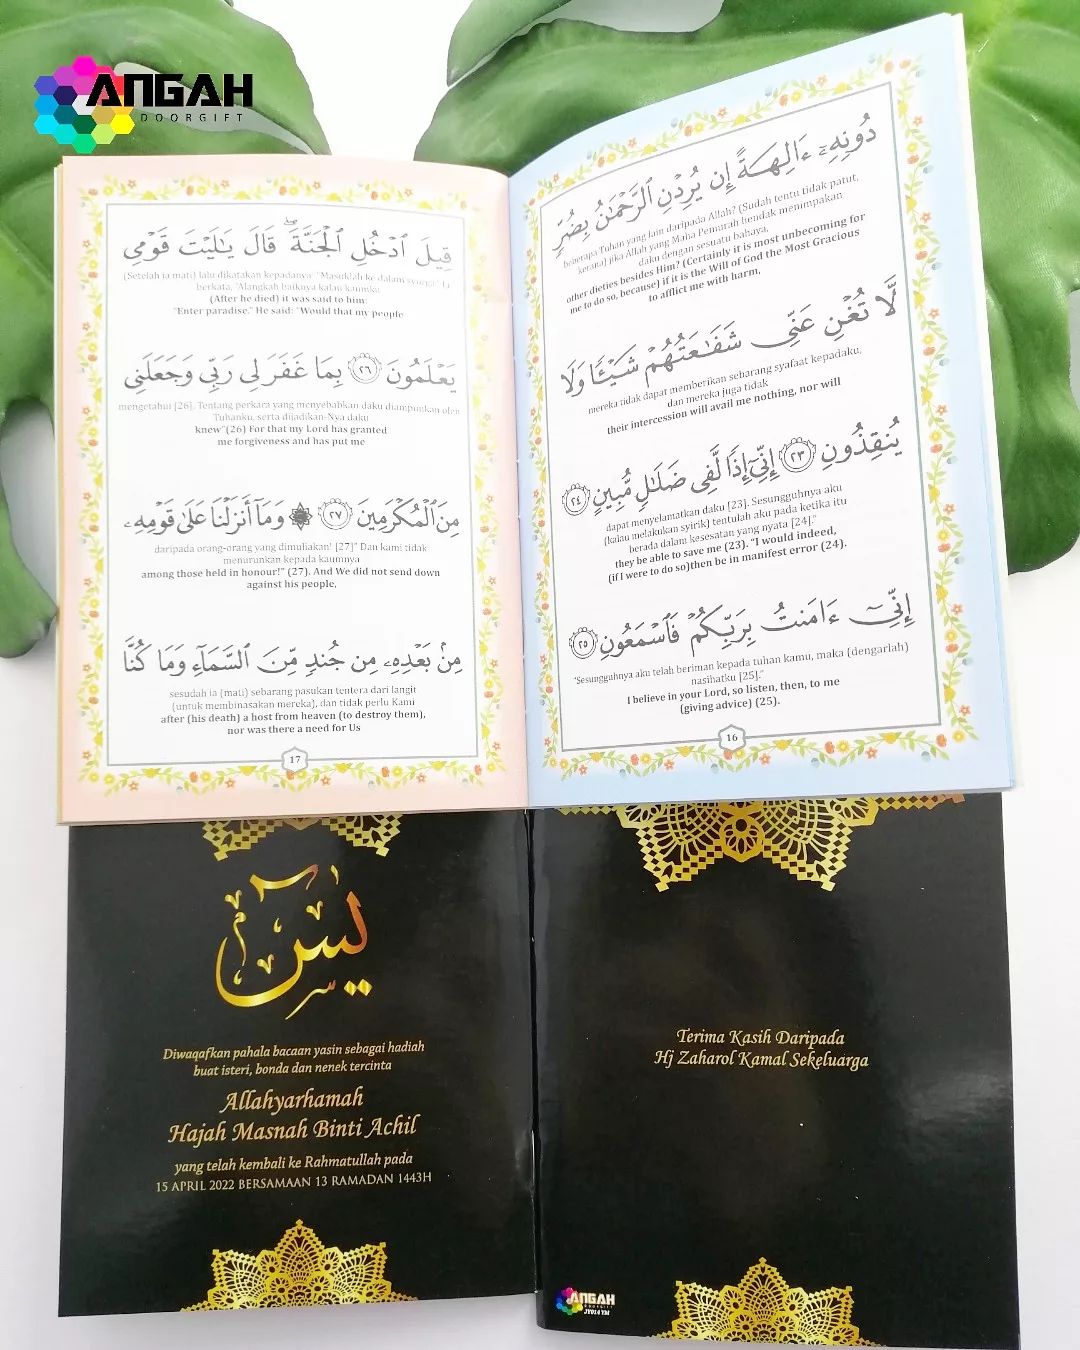 ANGAH
DOORGIFT
دُونِهِۦٓ ءَالِهَةً إِن يُرِدْنِ ٱلرَّحْمَٰنُ بِضُرٍّ
beberapa Tuhan yang lain daripada Allah? (Sudah tentu tidak patut,
kerana) jika Allah yang Maha Pemurah hendak menimpakan
daku dengan sesuatu bahaya,
other dieties besides Him? (Certainly it is most unbecoming for
me to do so, because) if it is the Will of God the Most Gracious
to afflict me with harm,
لَّا تُغْنِ عَنِّى شَفَٰعَتُهُمْ شَيْـًٔا وَلَا
mereka tidak dapat memberikan sebarang syafaat kepadaku,
dan mereka juga tidak
their intercession will avail me nothing, nor will
يُنقِذُونِ ٢٣ إِنِّىٓ إِذًا لَّفِى ضَلَٰلٍ مُّبِينٍ ٢٤
dapat menyelamatkan daku [23]. Sesungguhnya aku
(kalau melakukan syirik) tentulah aku pada ketika itu
berada dalam kesesatan yang nyata [24]."
they be able to save me (23). "I would indeed,
(if I were to do so)then be in manifest error (24).
إِنِّىٓ ءَامَنتُ بِرَبِّكُمْ فَٱسْمَعُونِ ٢٥
"Sesungguhnya aku telah beriman kepada tuhan kamu, maka (dengarlah)
nasihatku [25]."
I believe in your Lord, so listen, then, to me
(giving advice) (25).
16
قِيلَ ٱدْخُلِ ٱلْجَنَّةَ ۖ قَالَ يَٰلَيْتَ قَوْمِى
(Setelah ia mati) lalu dikatakan kepadanya: "Masuklah ke dalam syurga". Ia
berkata, "Alangkah baiknya kalau kaumku
(After he died) it was said to him:
"Enter paradise." He said: "Would that my people
يَعْلَمُونَ ٢٦ بِمَا غَفَرَ لِى رَبِّى وَجَعَلَنِى
mengetahui [26]. Tentang perkara yang menyebabkan daku diampunkan oleh
Tuhanku, serta dijadikan-Nya daku
knew"(26) For that my Lord has granted
me forgiveness and has put me
مِنَ ٱلْمُكْرَمِينَ ٢٧ ۞ وَمَآ أَنزَلْنَا عَلَىٰ قَوْمِهِۦ
daripada orang-orang yang dimuliakan! [27]" Dan kami tidak
menurunkan kepada kaumnya
among those held in honour!" (27). And We did not send down
against his people,
مِنۢ بَعْدِهِۦ مِن جُندٍ مِّنَ ٱلسَّمَآءِ وَمَا كُنَّا
sesudah ia (mati) sebarang pasukan tentera dari langit
(untuk membinasakan mereka), dan tidak perlu Kami
after (his death) a host from heaven (to destroy them),
nor was there a need for Us
17
يس
Diwaqafkan pahala bacaan yasin sebagai hadiah
buat isteri, bonda dan nenek tercinta
Allahyarhamah
Hajah Masnah Binti Achil
yang telah kembali ke Rahmatullah pada
15 APRIL 2022 BERSAMAAN 13 RAMADAN 1443H
Terima Kasih Daripada
Hj Zaharol Kamal Sekeluarga
ANGAH
DOORGIFT
JY014 YM